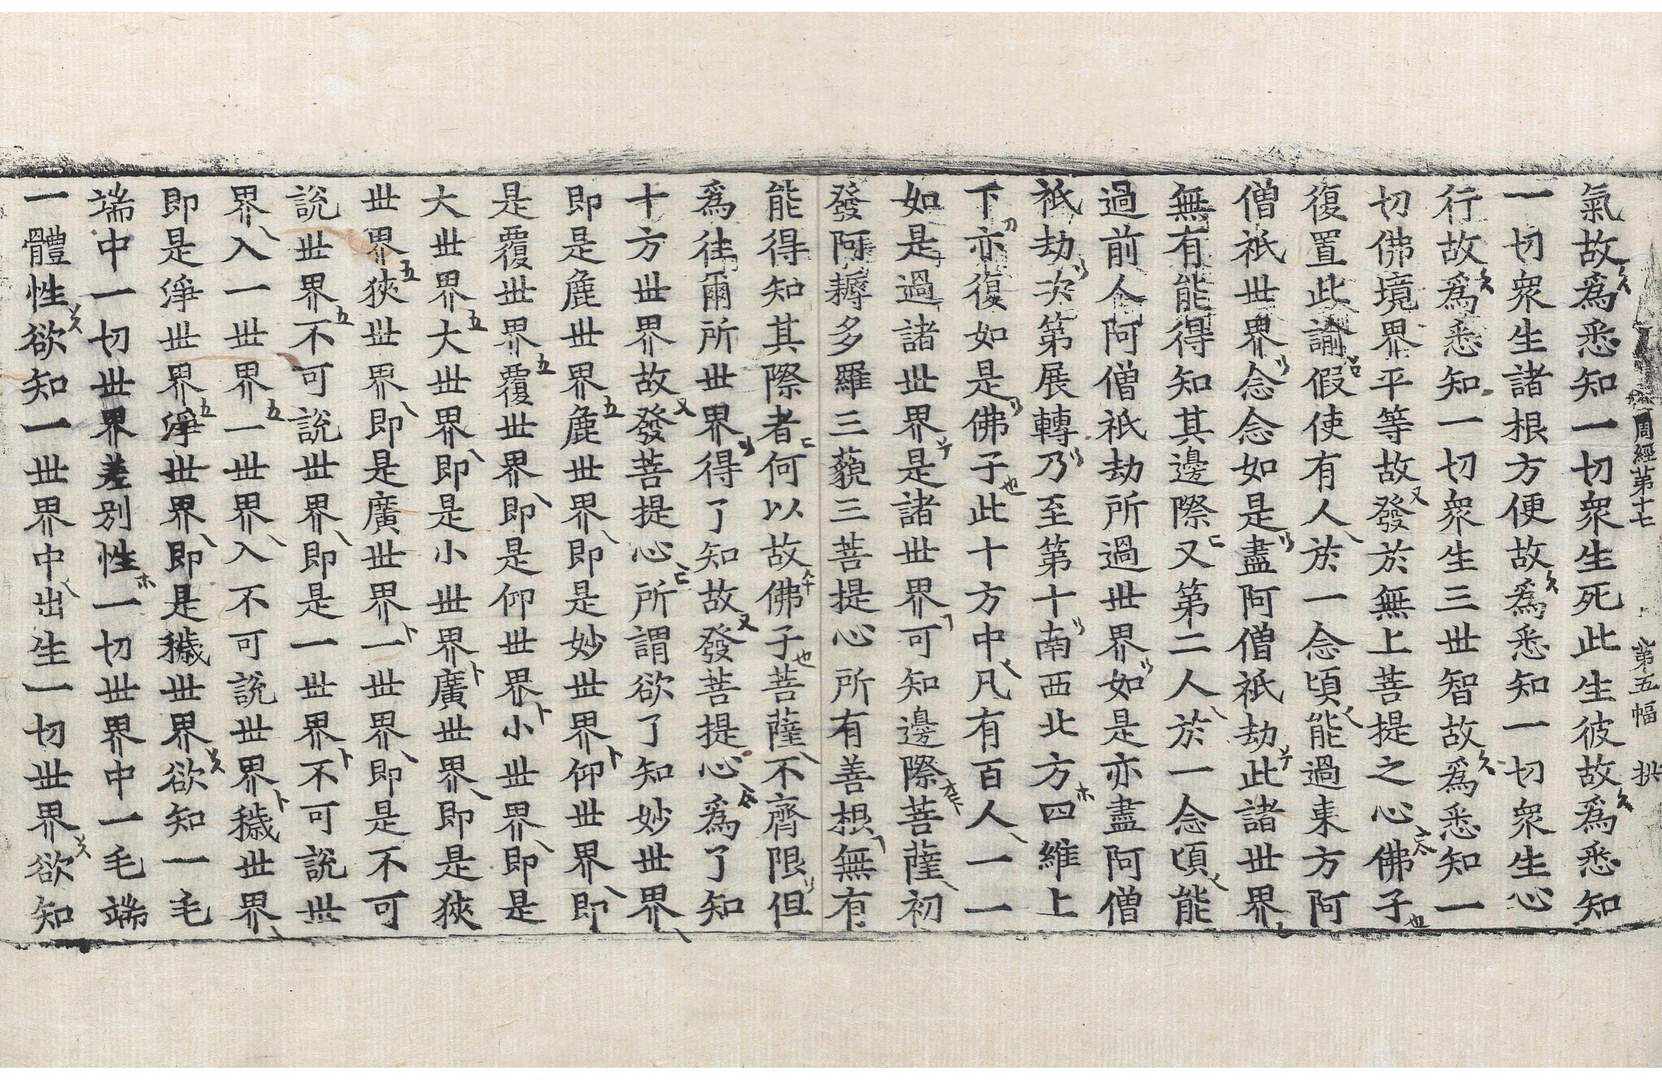 周經第十七 第五幅 拱
氣故爲悉知一切衆生死此生彼故爲悉知
一切衆生諸根方便故爲悉知一切衆生心
行故爲悉知一切衆生三世智故爲悉知一
切佛境界平等故發於無上菩提之心佛子
復置此諭假使有人於一念頃能過東方阿
僧祇世界念念如是盡阿僧祇劫此諸世界
無有能得知其邊際又第二人於一念頃能
過前人阿僧祇劫所過世界如是亦盡阿僧
祇劫次第展轉乃至第十南西北方四維上
下亦復如是佛子此十方中凡有百人一一
如是過諸世界是諸世界可知邊際菩薩初
發阿耨多羅三藐三菩提心所有善根無有
能得知其際者何以故佛子菩薩不齊限但
爲往爾所世界得了知故發菩提心爲了知
十方世界故發菩提心所謂欲了知妙世界
即是麁世界麁世界即是妙世界仰世界即
是覆世界覆世界即是仰世界小世界即是
大世界大世界即是小世界廣世界即是狹
世界狹世界即是廣世界一世界即是不可
說世界不可說世界即是一世界不可說世
界入一世界一世界入不可說世界穢世界
即是淨世界淨世界即是穢世界欲知一毛
端中一切世界差別性一切世界中一毛端
一體性欲知一世界中出生一切世界欲知